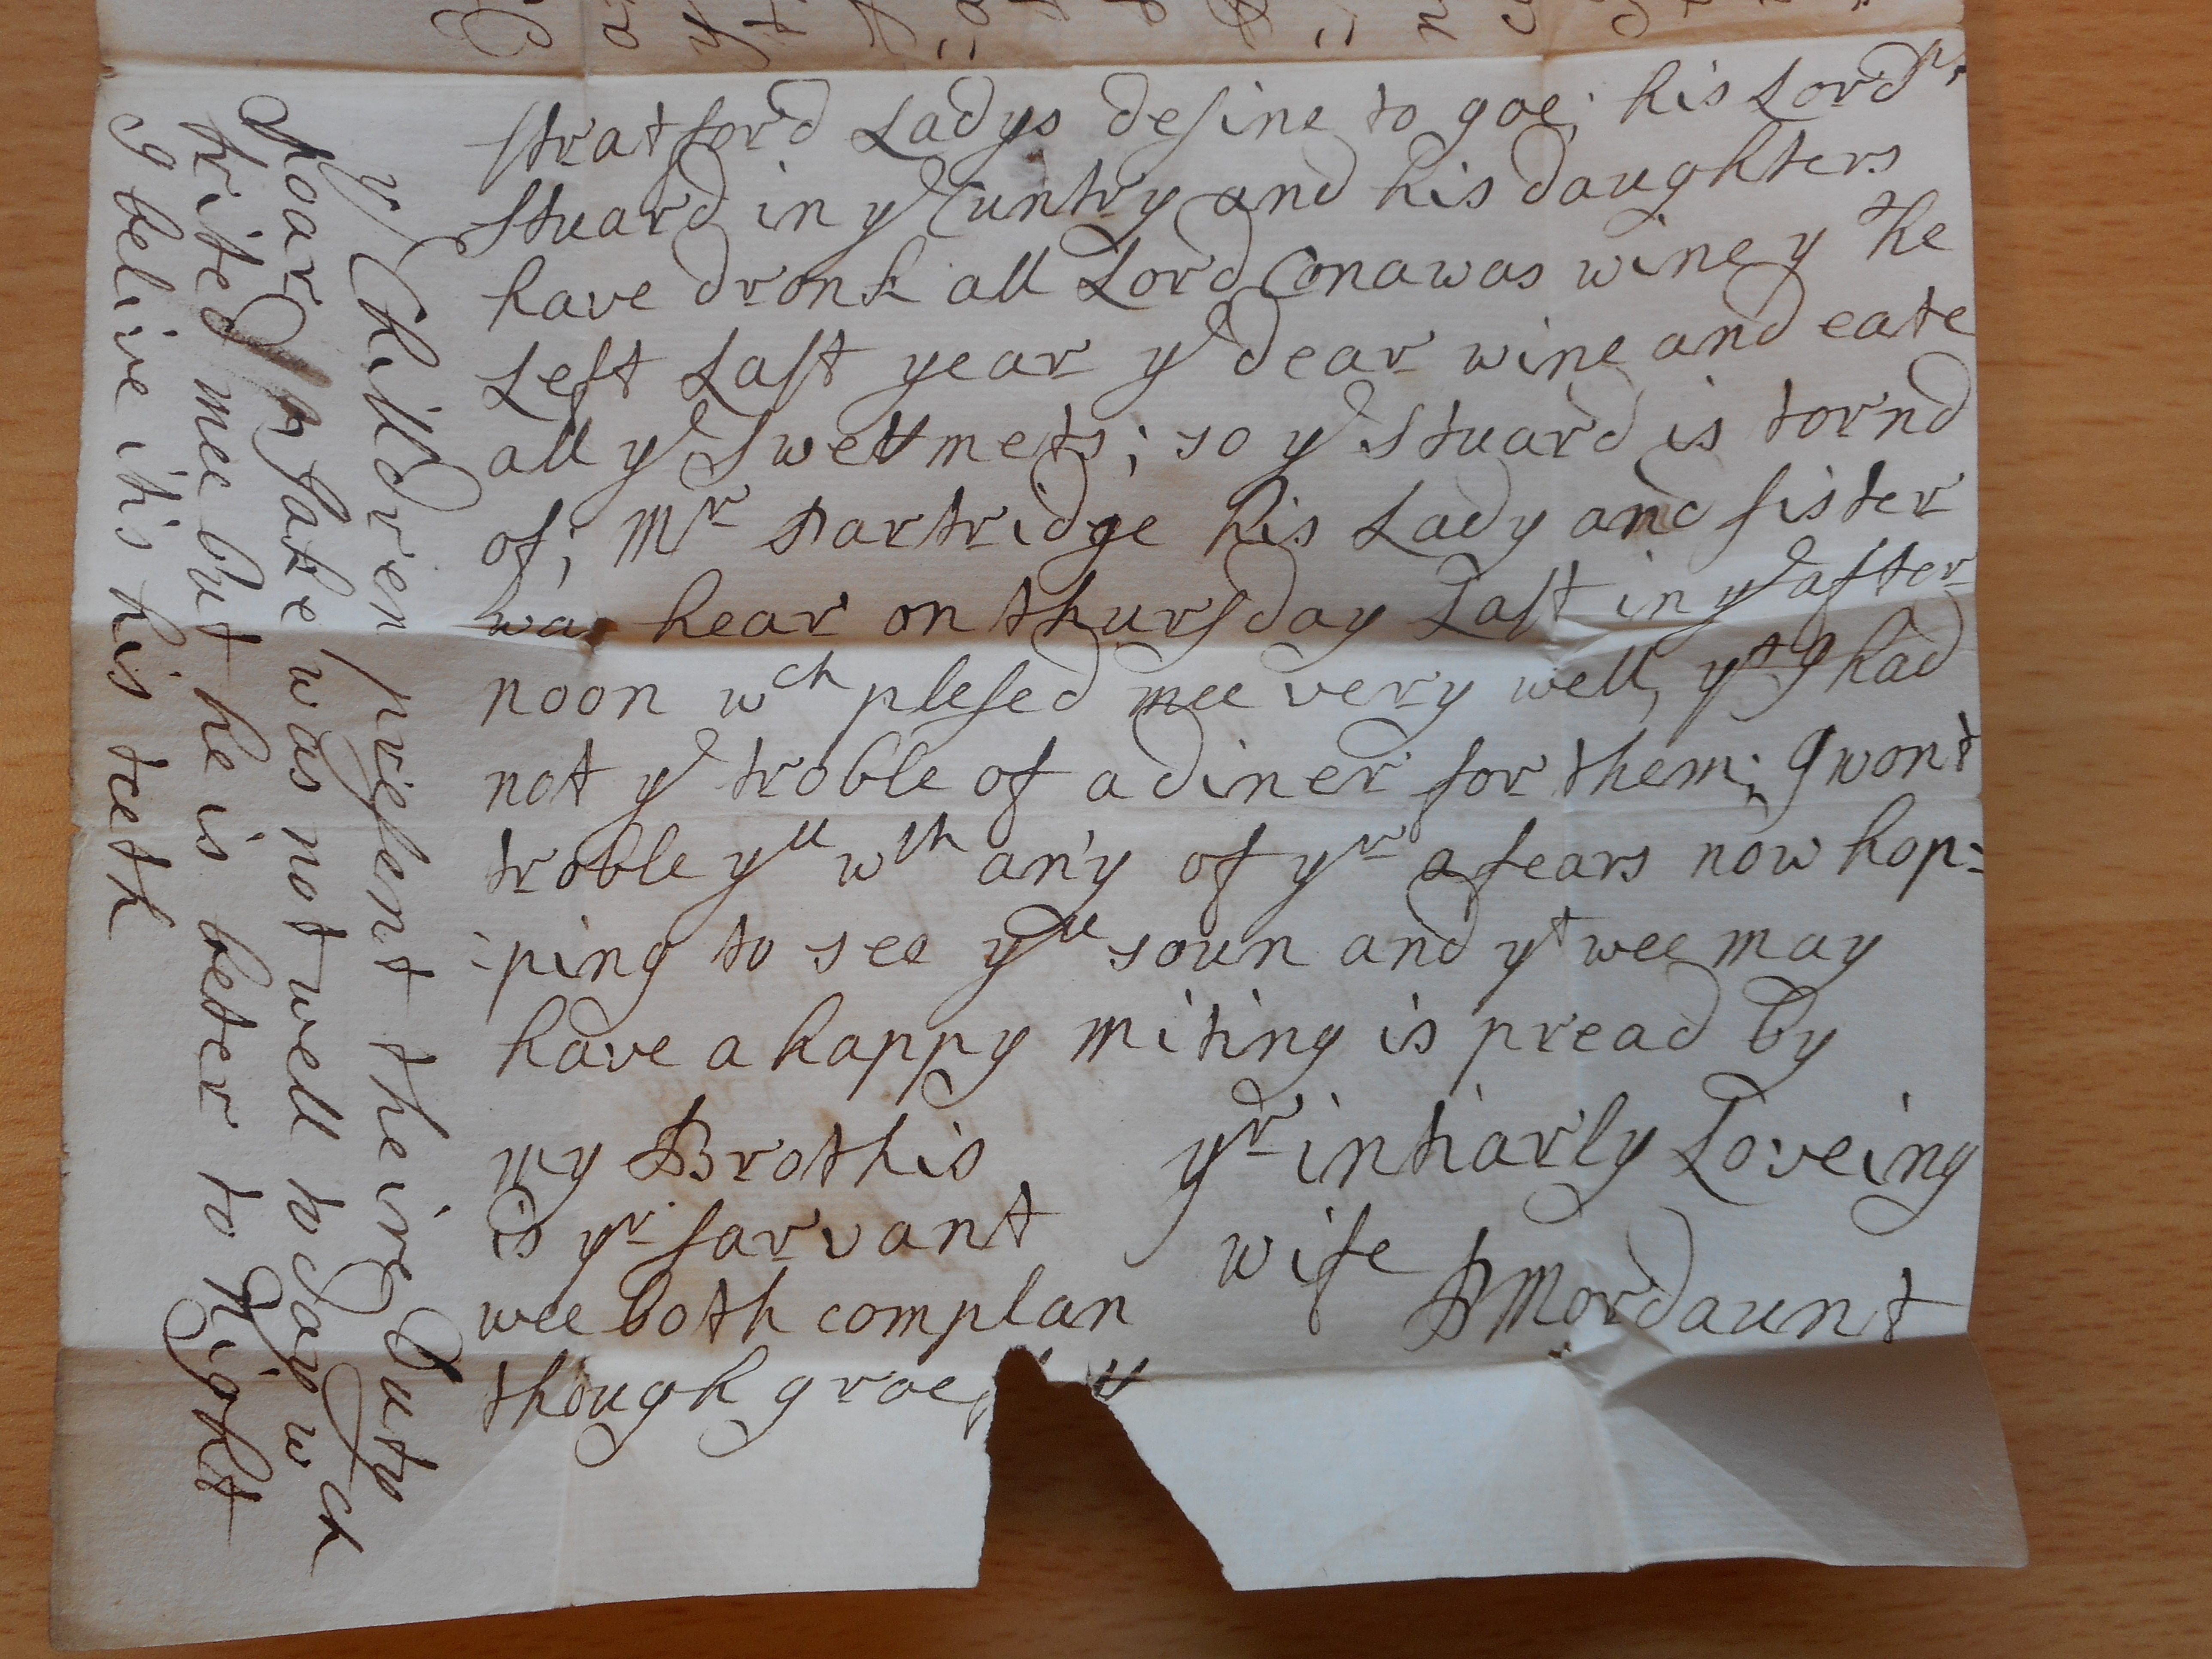 stratford Ladys desine to goe; his Lordp
stuard in ye Cuntry and his daughters
have dronk all Lord Conawas wine y he
Left Last year ye dear wine and eate
all ye swettmets; so ye stuard is tornd
of; Mr Partridge his Lady and sister
was hear on thursday Last in ye after
noon wch plesed mee very well, yt I had
not ye troble of a diner for them; I wont
troble yu wth any of yr afears now hop=
=ping to see yu soun and yt wee may
have a happy miting is pread by
yr intiarly Loveing
wife PMordaunt
my Brothis
is yr sarvant
wee both complan
though groe
ye Children present theire Duty
poar was not well to day wch
frited mee but he is beter to Night
I belive it's his teeth